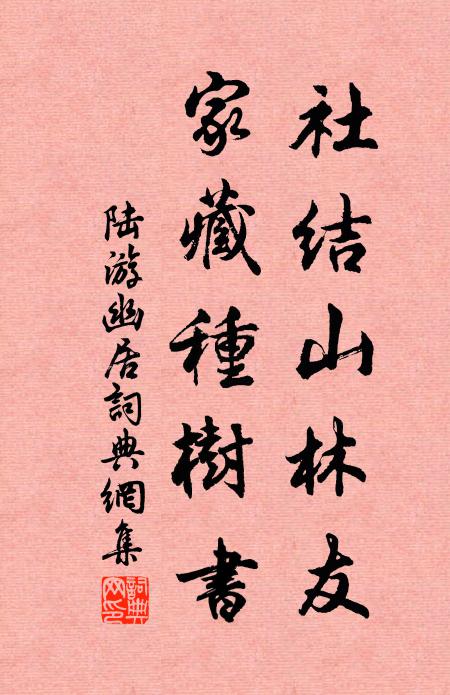 社结山林友
家藏種樹書
陆游幽居詞典網集
詞典网印